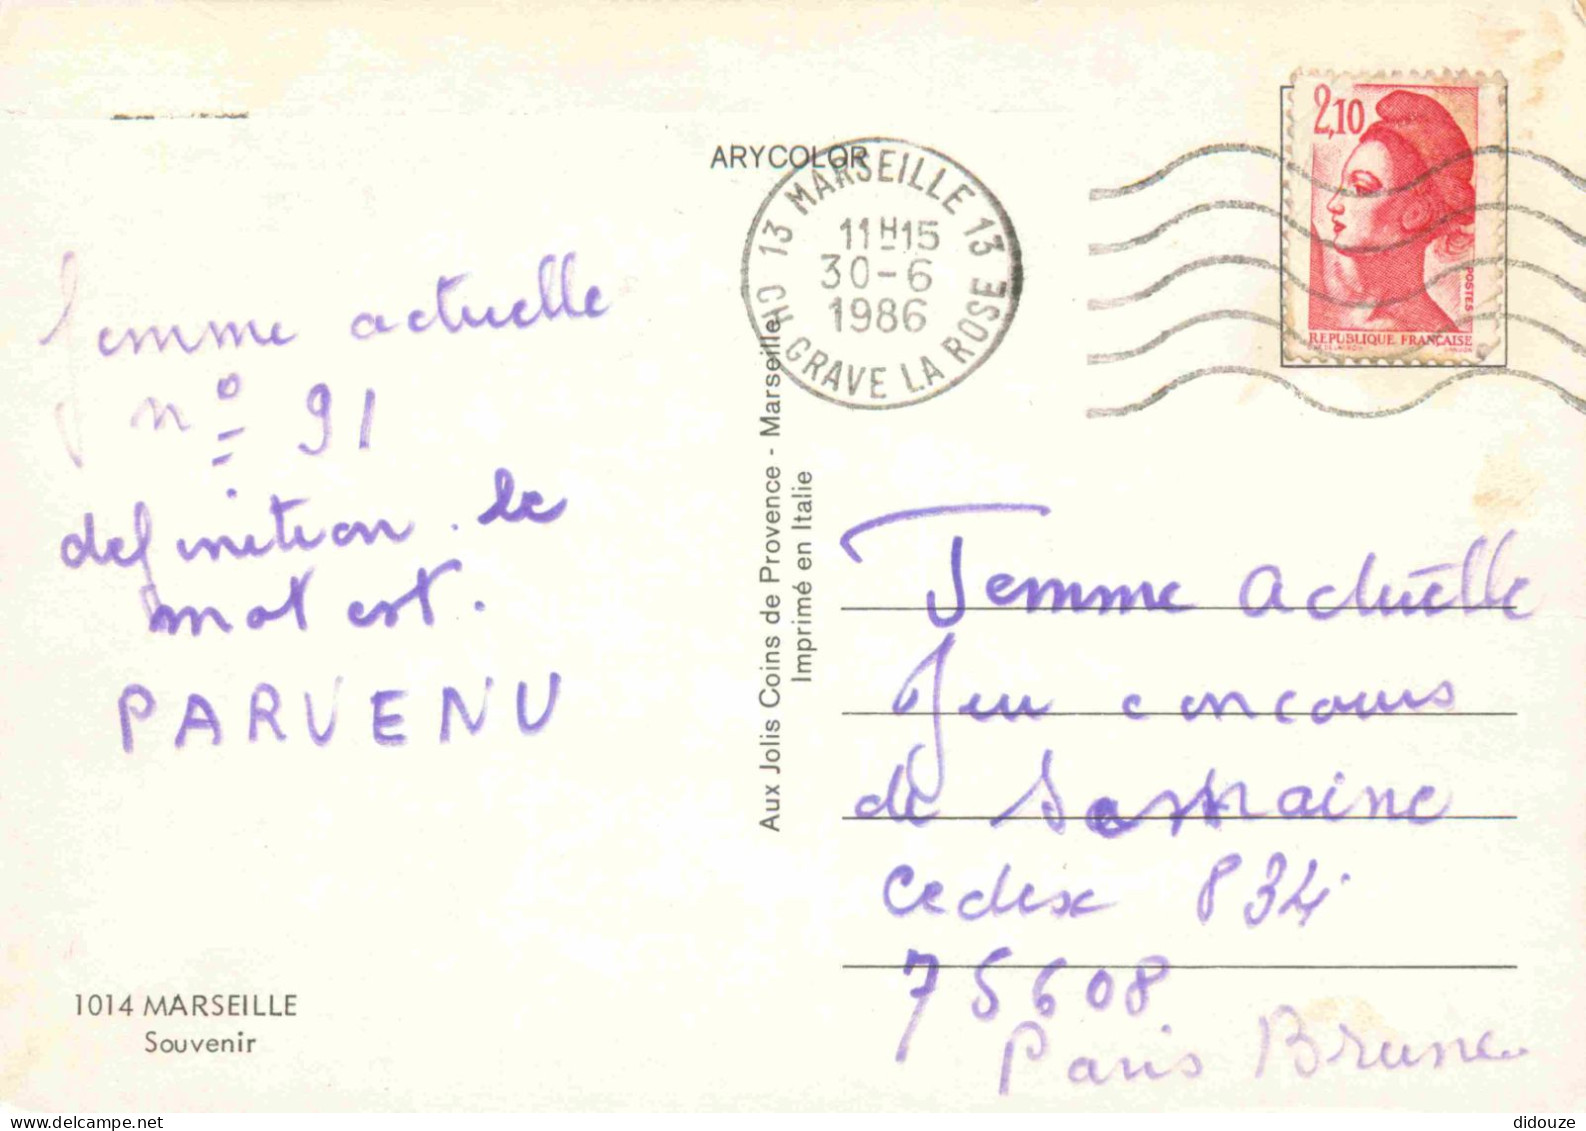 ARYCOLOR
13 MARSEILLE 13
11H15
30-6
1986
CH. GRAVE LA ROSE
2,10
POSTES
REPUBLIQUE FRANÇAISE
Femme actuelle
n° 91
definition. le
mot est.
PARVENU
1014 MARSEILLE
Souvenir
Aux Jolis Coins de Provence - Marseille
Imprimé en Italie
Femme actuelle
Jeu concours
de semaine
Cedex 834
75608
Paris Brune
didouze